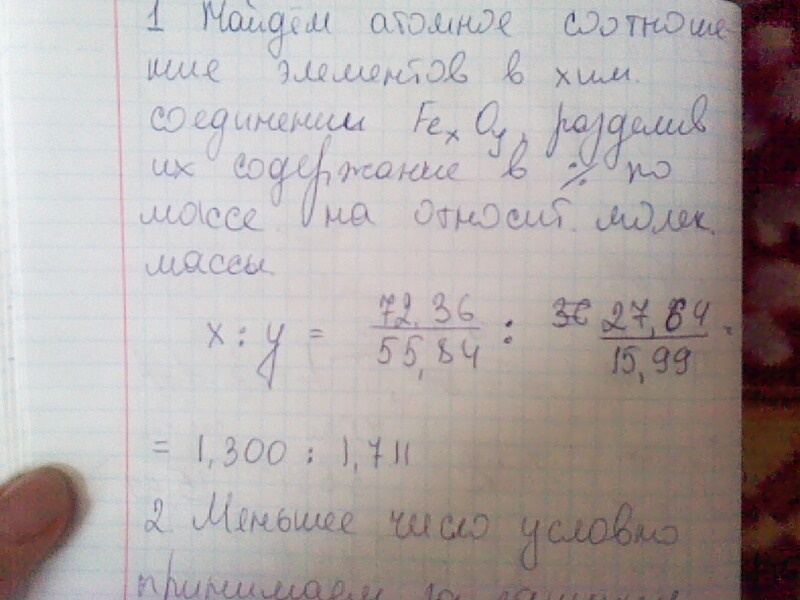 1 Найдём атомное соотноше-
ние элементов в хим.
соединении FexOy, разделив
их содержание в % по
массе на относит. молек.
массы.
x : y = 72,36/55,84 : 27,64/15,99 =
= 1,300 : 1,711
2 Меньшее число условно
принимаем за